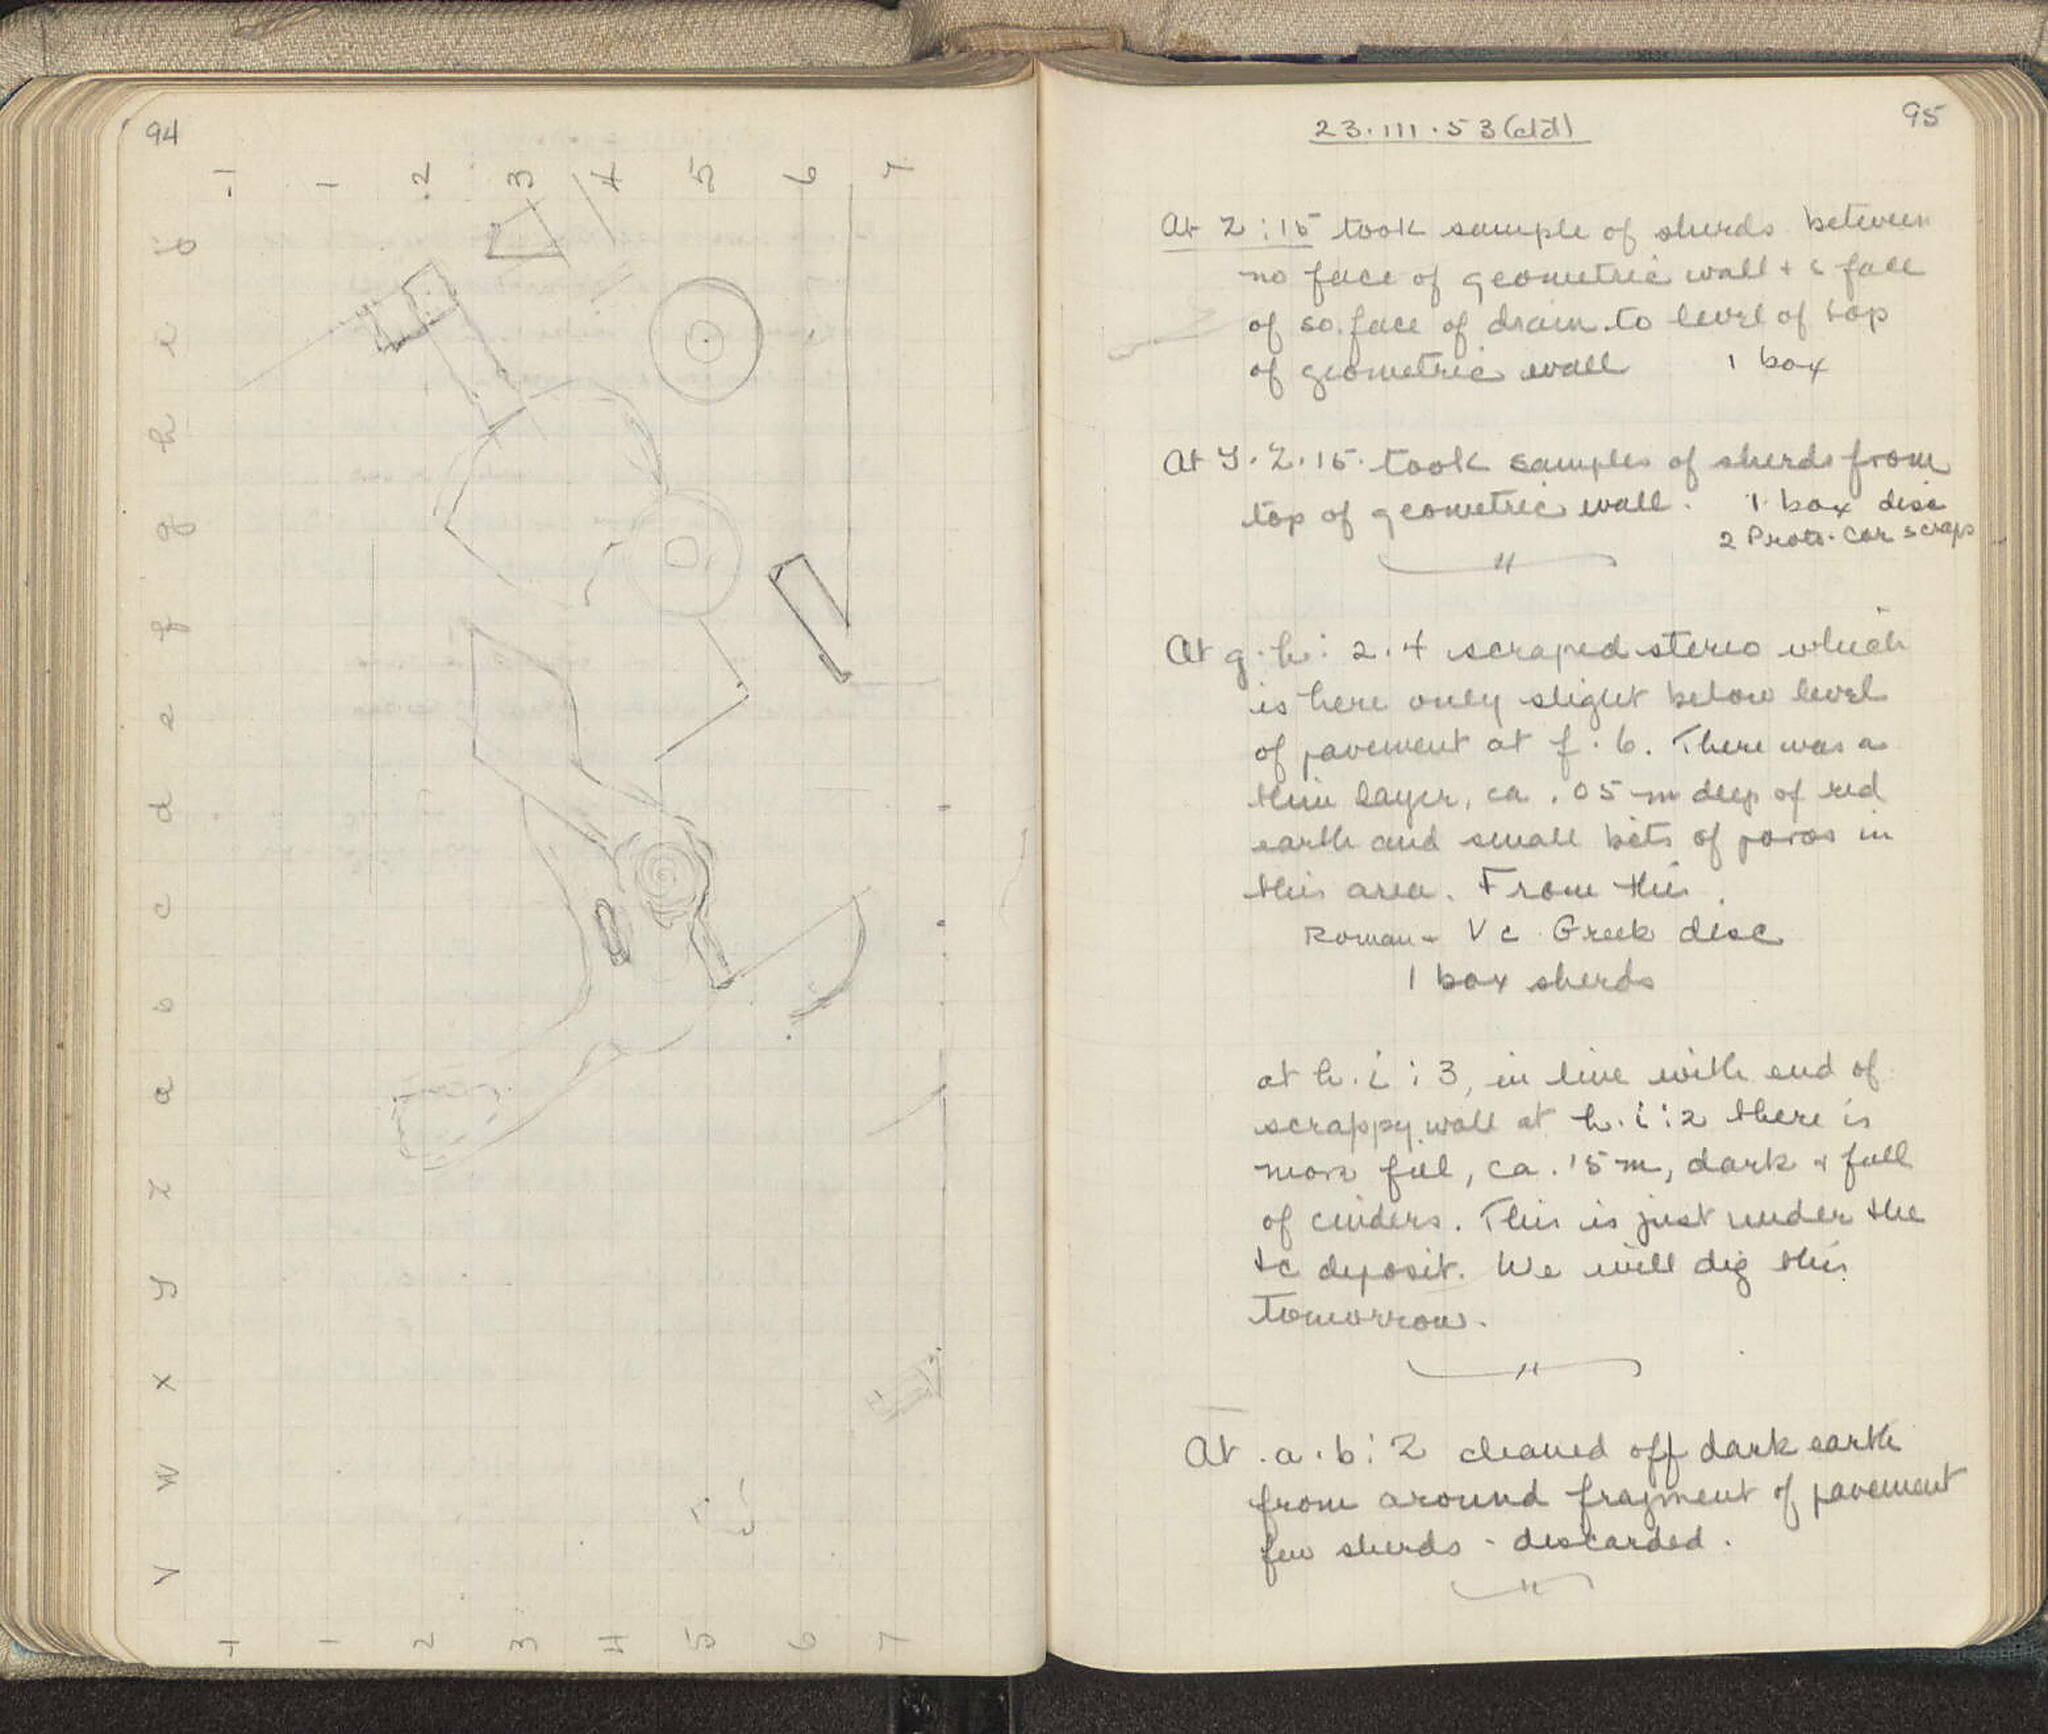 94
-1 1 2 3 4 5 6 7
j
i
h
g
f
e
d
c
b
a
Z
Y
X
W
V
-1 1 2 3 4 5 6 7
95
23.III.53 (ctd)
At Z:15 took sample of sherds between
no face of geometric wall + c face
of so. face of drain to level of top
of geometric wall 1 box
At Y.Z.15. took samples of sherds from
top of geometric wall. 1 box disc
2 Proto-Cor scraps
"
At g.h: 2.4 scraped stereo which
is here only slight below level
of pavement at f.6. There was a
thin layer, ca .05 m deep of red
earth and small bits of poros in
this area. From this
Roman + V c Greek disc
1 box sherds
at h.i:3, in line with end of
scrappy wall at h.i:2 there is
more fill, ca .15 m, dark + full
of cinders. This is just under the
tc deposit. We will dig this
tomorrow.
"
At .a.b:2 cleaned off dark earth
from around fragment of pavement
few sherds - discarded.
"